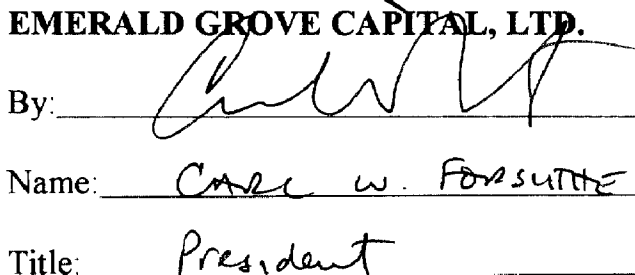 EMERALD GROVE CAPITAL, LTD.
By:
Name: CARL W. FORSYTHE
Title: President